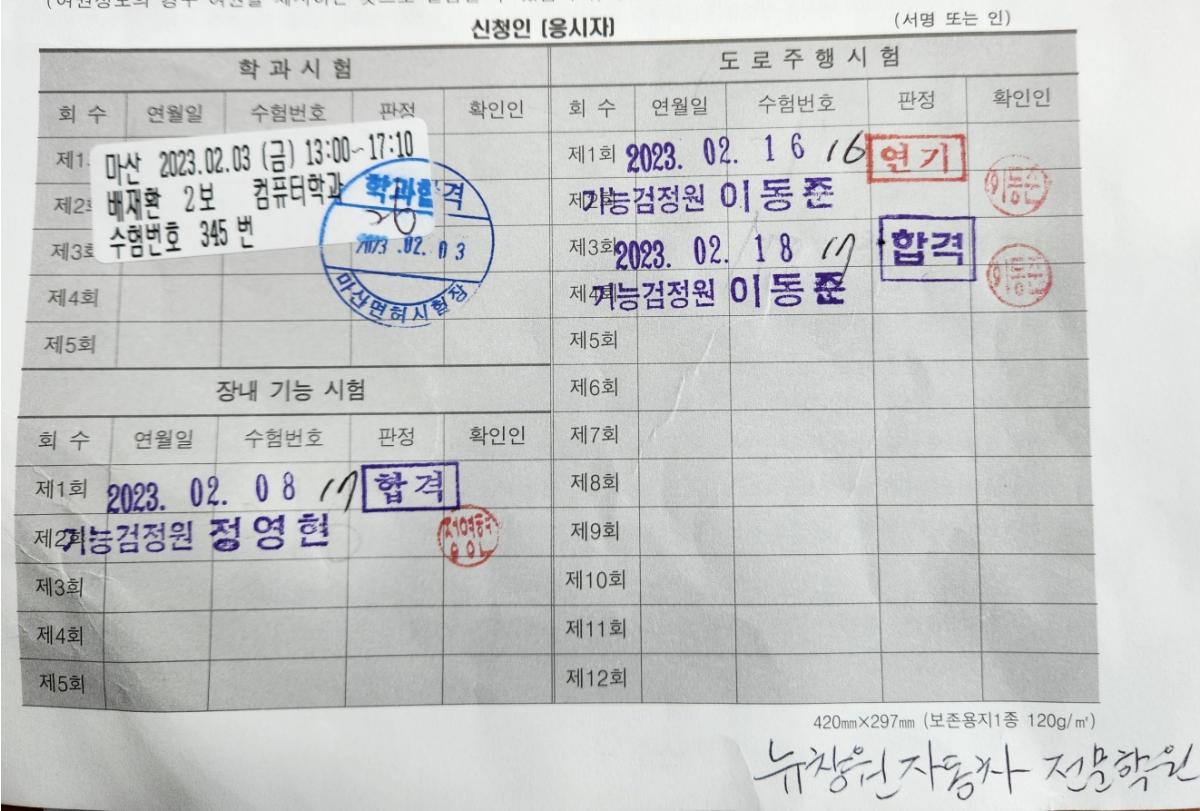 신청인 (응시자)
(서명 또는 인)
학 과 시 험
회 수 연월일 수험번호 판정 확인인
제1
마산 2023.02.03 (금) 13:00~17:10
배재환 2보 컴퓨터학과
수험번호 345 번
제2회
제3회
제4회
제5회
학과합격
2023.02.03
마산면허시험장
장내 기능 시험
회 수 연월일 수험번호 판정 확인인
제1회 2023. 02. 08 17 합격
제2회 기능검정원 정영현
제3회
제4회
제5회
도 로 주 행 시 험
회 수 연월일 수험번호 판정 확인인
제1회 2023. 02. 16 16 연기
제2회 기능검정원 이동준
제3회 2023. 02. 18 17 합격
제4회 기능검정원 이동준
제5회
제6회
제7회
제8회
제9회
제10회
제11회
제12회
420㎜×297㎜ (보존용지1종 120g/㎡)
뉴창원자동차 전문학원